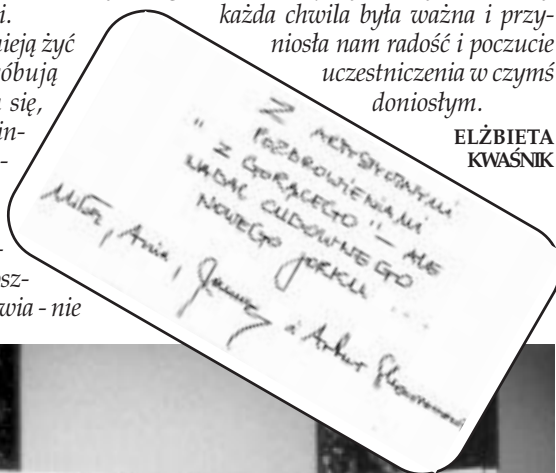 i.
nieją żyć
óbują
się,
in-
-
-
osz-
wia - nie
każda chwila była ważna i przy-
niosła nam radość i poczucie
uczestniczenia w czymś
doniosłym.
ELŻBIETA
KWAŚNIK
Z ARTYSTYCZNYMI
POZDROWIENIAMI
"Z GORĄCEGO" - ALE
NADAL CUDOWNEGO
NOWEGO JORKU ...
Miłosz, Ania, i Artur